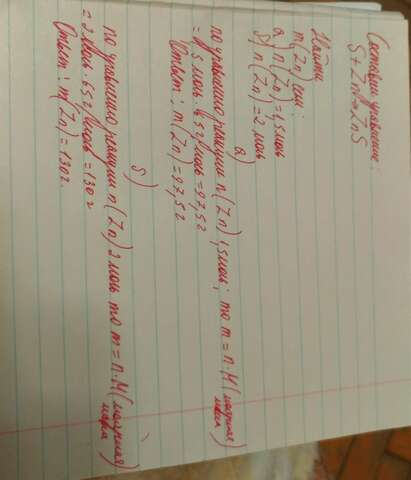 Составим уравнение:
S + Zn = ZnS
Найти
m(Zn) если:
а) n(Zn) = 1,5 моль
б) n(Zn) = 2 моль
а)
по уравнению реакции n(Zn) 1,5 моль; то m = n·M (молярная масса)
= 1,5 моль · 65 г/моль = 97,5 г
Ответ: m(Zn) = 97,5 г
б)
по уравнению реакции n(Zn) 2 моль то m = n·M (молярная масса)
= 2 моль · 65 г/моль = 130 г
Ответ: m(Zn) = 130 г.